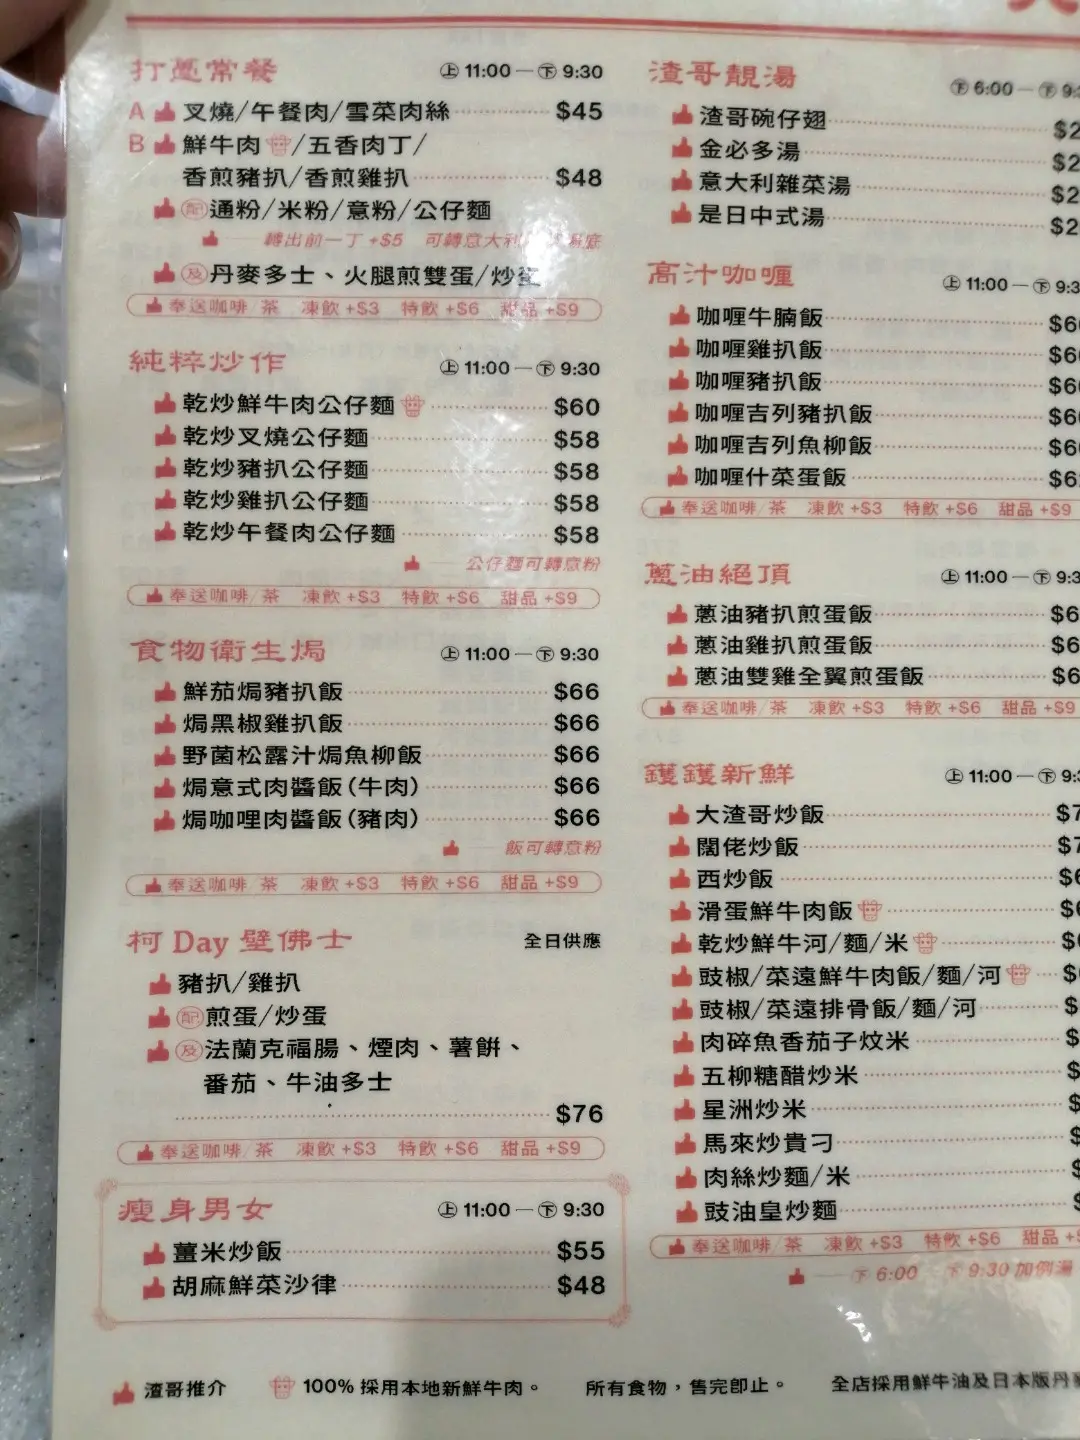 打躉常餐 上 11:00 — 下 9:30
A 叉燒/午餐肉/雪菜肉絲 $45
B 鮮牛肉/五香肉丁/
香煎豬扒/香煎雞扒 $48
配 通粉/米粉/意粉/公仔麵
轉出前一丁 +$5 可轉意大利 湯底
及 丹麥多士、火腿煎雙蛋/炒蛋
奉送咖啡/茶 凍飲 +$3 特飲 +$6 甜品 +$9
純粹炒作 上 11:00 — 下 9:30
乾炒鮮牛肉公仔麵 $60
乾炒叉燒公仔麵 $58
乾炒豬扒公仔麵 $58
乾炒雞扒公仔麵 $58
乾炒午餐肉公仔麵 $58
公仔麵可轉意粉
奉送咖啡/茶 凍飲 +$3 特飲 +$6 甜品 +$9
食物衛生焗 上 11:00 — 下 9:30
鮮茄焗豬扒飯 $66
焗黑椒雞扒飯 $66
野菌松露汁焗魚柳飯 $66
焗意式肉醬飯(牛肉) $66
焗咖哩肉醬飯(豬肉) $66
飯可轉意粉
奉送咖啡/茶 凍飲 +$3 特飲 +$6 甜品 +$9
柯 Day 壁佛士 全日供應
豬扒/雞扒
配 煎蛋/炒蛋
及 法蘭克福腸、煙肉、薯餅、
番茄、牛油多士
$76
奉送咖啡/茶 凍飲 +$3 特飲 +$6 甜品 +$9
瘦身男女 上 11:00 — 下 9:30
薑米炒飯 $55
胡麻鮮菜沙律 $48
渣哥靚湯 下 6:00 — 下 9:
渣哥碗仔翅 $2
金必多湯 $2
意大利雜菜湯 $2
是日中式湯 $2
高汁咖喱 上 11:00 — 下 9:3
咖喱牛腩飯 $6
咖喱雞扒飯 $6
咖喱豬扒飯 $6
咖喱吉列豬扒飯 $6
咖喱吉列魚柳飯 $6
咖喱什菜蛋飯 $6
奉送咖啡/茶 凍飲 +$3 特飲 +$6 甜品 +$9
蔥油絕頂 上 11:00 — 下 9:3
蔥油豬扒煎蛋飯 $6
蔥油雞扒煎蛋飯 $6
蔥油雙雞全翼煎蛋飯 $6
奉送咖啡/茶 凍飲 +$3 特飲 +$6 甜品 +$9
鑊鑊新鮮 上 11:00 — 下 9:
大渣哥炒飯 $7
闊佬炒飯 $7
西炒飯 $6
滑蛋鮮牛肉飯 $
乾炒鮮牛河/麵/米 $
豉椒/菜遠鮮牛肉飯/麵/河 $
豉椒/菜遠排骨飯/麵/河 $
肉碎魚香茄子炆米 $
五柳糖醋炒米 $
星洲炒米 $
馬來炒貴刁 $
肉絲炒麵/米 $
豉油皇炒麵 $
奉送咖啡/茶 凍飲 +$3 特飲 +$6 甜品 +
下 6:00 下 9:30 加例湯
渣哥推介 100% 採用本地新鮮牛肉。 所有食物,售完即止。 全店採用鮮牛油及日本版丹